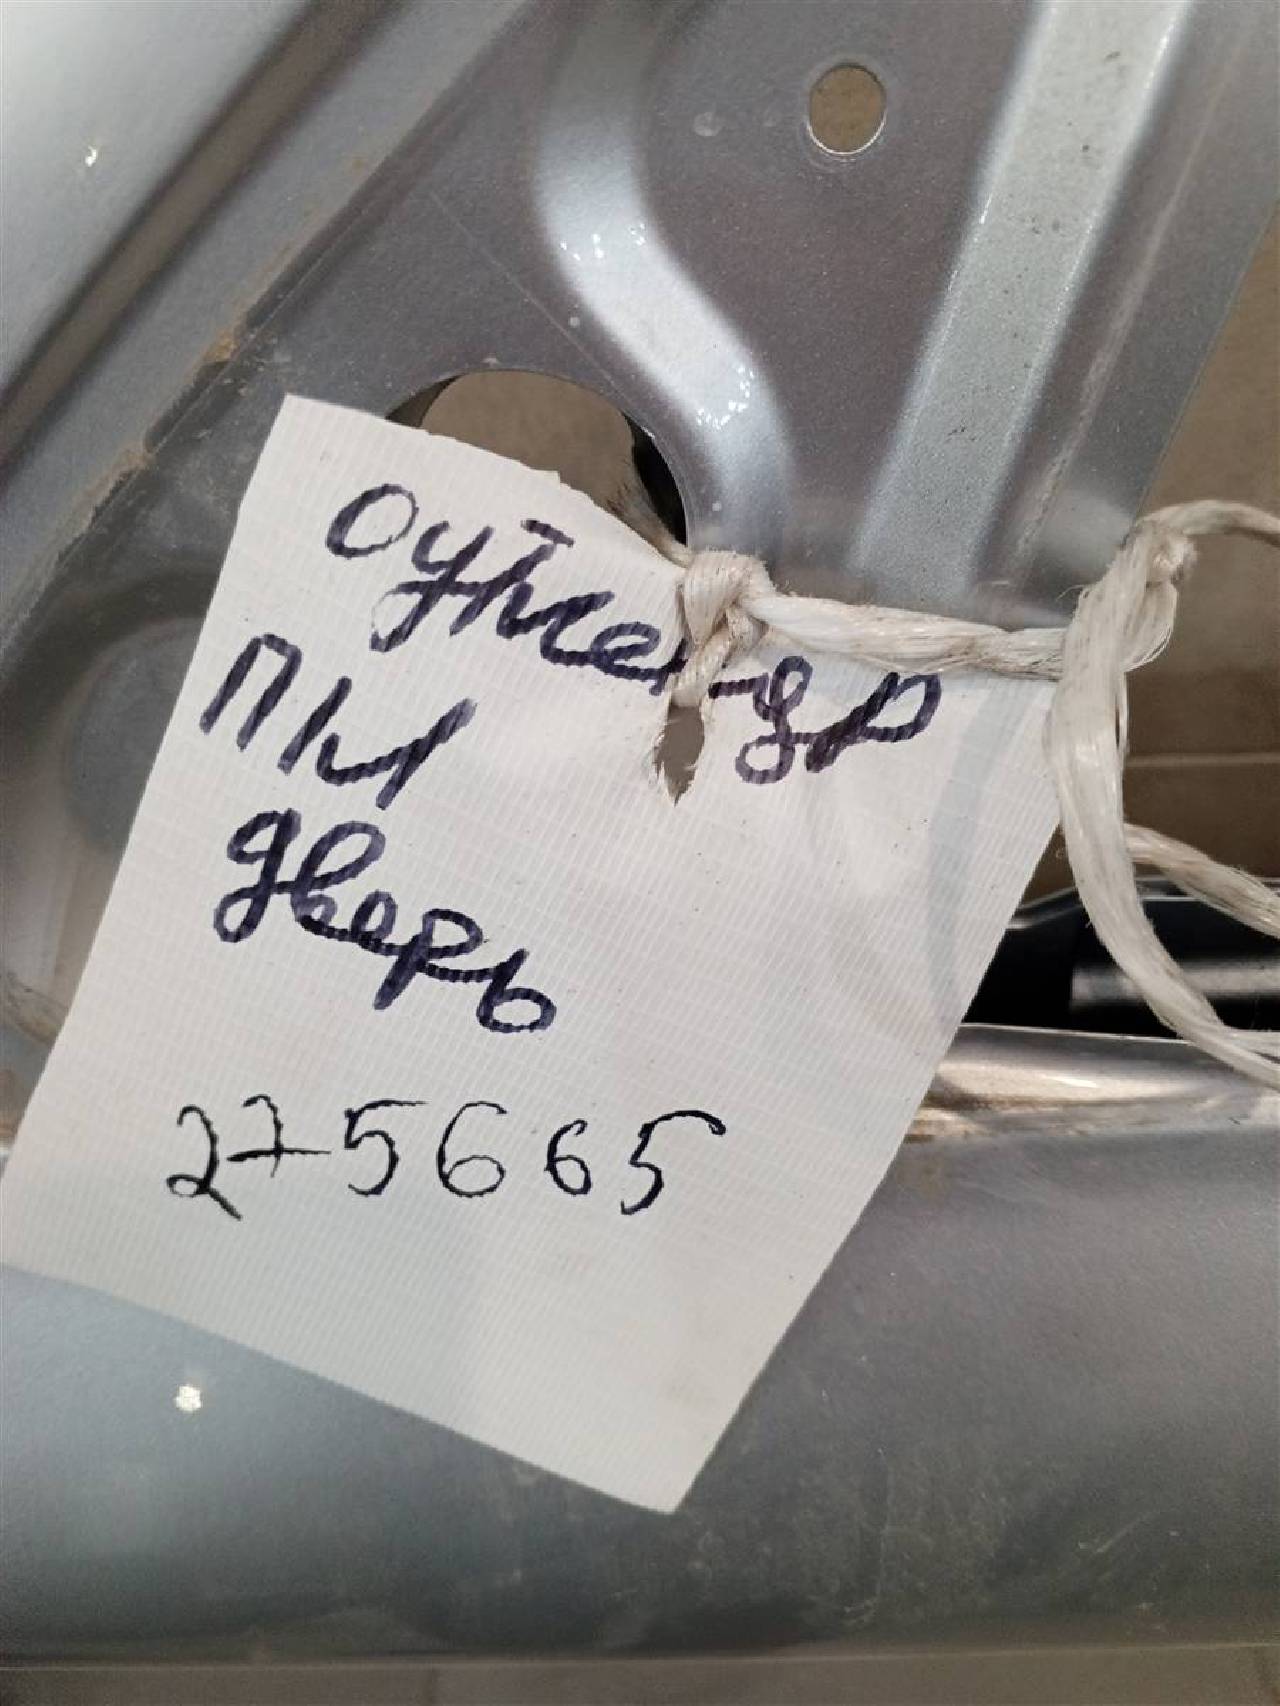 Оутлендр
П/И
дверь
275665